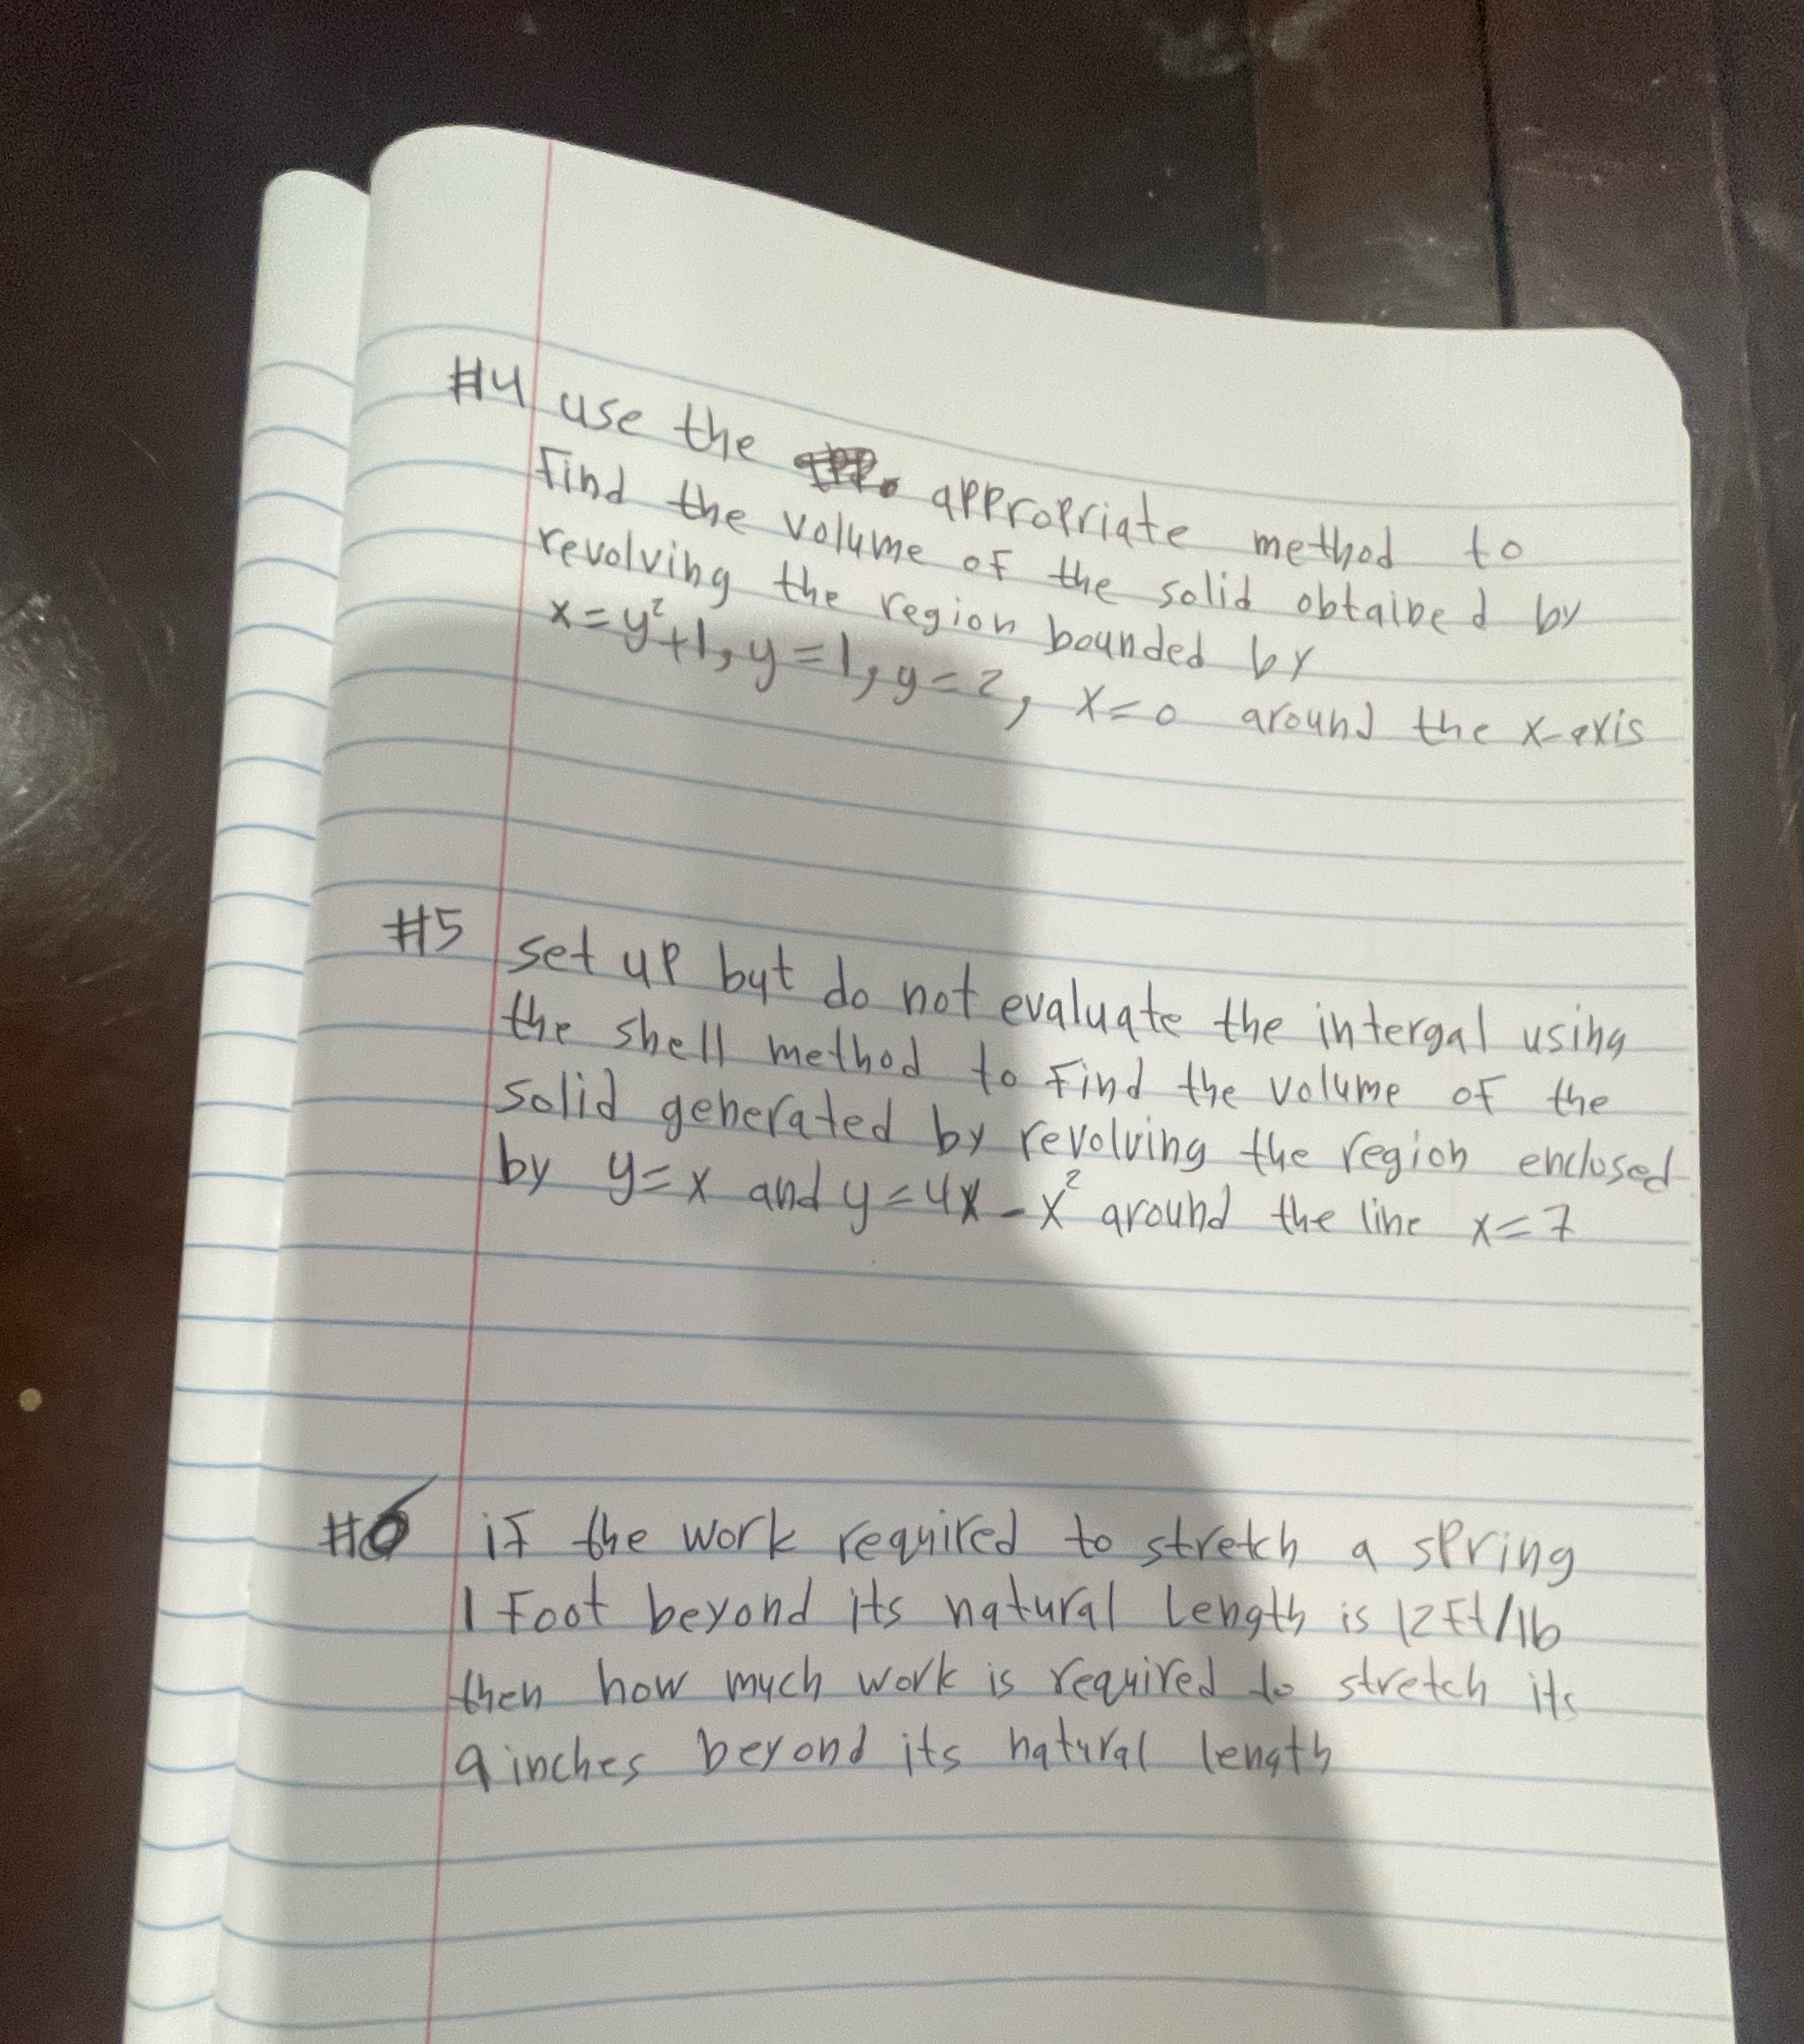 #4 use the appropriate method to
Find the volume of the solid obtained by
revolving the region bounded by
x=y²+1, y=1, y=2, x=0 around the x-axis
#5 set up but do not evaluate the intergal using
the shell method to Find the volume of the
solid generated by revolving the region enclosed
by y=x and y=4x-x² around the line x=7
#6 if the work required to stretch a spring
1 Foot beyond its natural length is 12Ft/lb
then how much work is required to stretch its
9 inches beyond its natural length